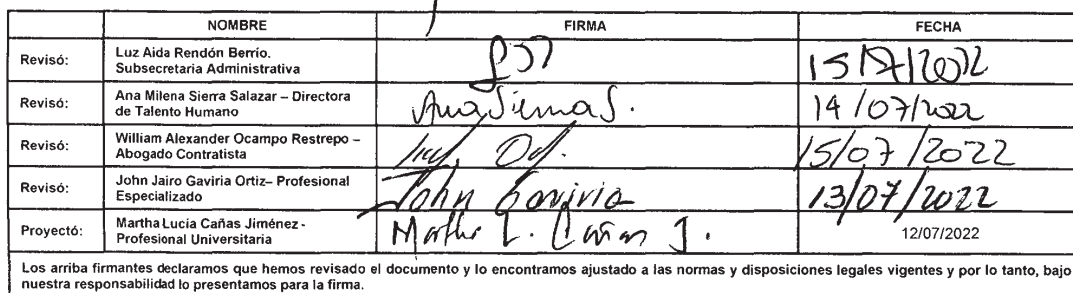 NOMBRE FIRMA FECHA
Revisó: Luz Aida Rendón Berrío.
Subsecretaria Administrativa
15/7/2022
Revisó: Ana Milena Sierra Salazar – Directora
de Talento Humano
Ana Sierra S. 14/07/2022
Revisó: William Alexander Ocampo Restrepo –
Abogado Contratista
15/07/2022
Revisó: John Jairo Gaviria Ortiz– Profesional
Especializado
John Gaviria 13/07/2022
Proyectó: Martha Lucía Cañas Jiménez -
Profesional Universitaria
Martha L. Cañas J. 12/07/2022
Los arriba firmantes declaramos que hemos revisado el documento y lo encontramos ajustado a las normas y disposiciones legales vigentes y por lo tanto, bajo
nuestra responsabilidad lo presentamos para la firma.